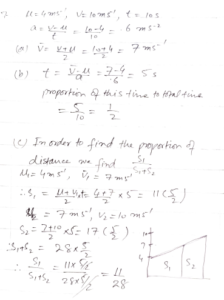 u = 4 ms⁻¹, v = 10 ms⁻¹, t = 10 s
a = (v-u)/t = (10-4)/10 = .6 ms⁻²
(a) v̄ = (v+u)/2 = (10+4)/2 = 7 ms⁻¹
(b) t = (v̄-u)/a = (7-4)/.6 = 5 s
proportion of this time to total time
= 5/10 = 1/2
(c) In order to find the proportion of
distance we find S₁/(S₁+S₂)
u₁ = 4 ms⁻¹, v₁ = 7 ms⁻¹
∴ S₁ = (4+7)/2 × 5 = 11(5/2)
= 7 ms⁻¹, v₂ = 10 ms⁻¹
S₂ = (7+10)/2 × 5 = 17(5/2)
∴ S₁+S₂ = 28 × 5/2
∴ S₁/(S₁+S₂) = (11 × 5/2)/(28 × 5/2) = 11/28
10
7
4
S₁ S₂